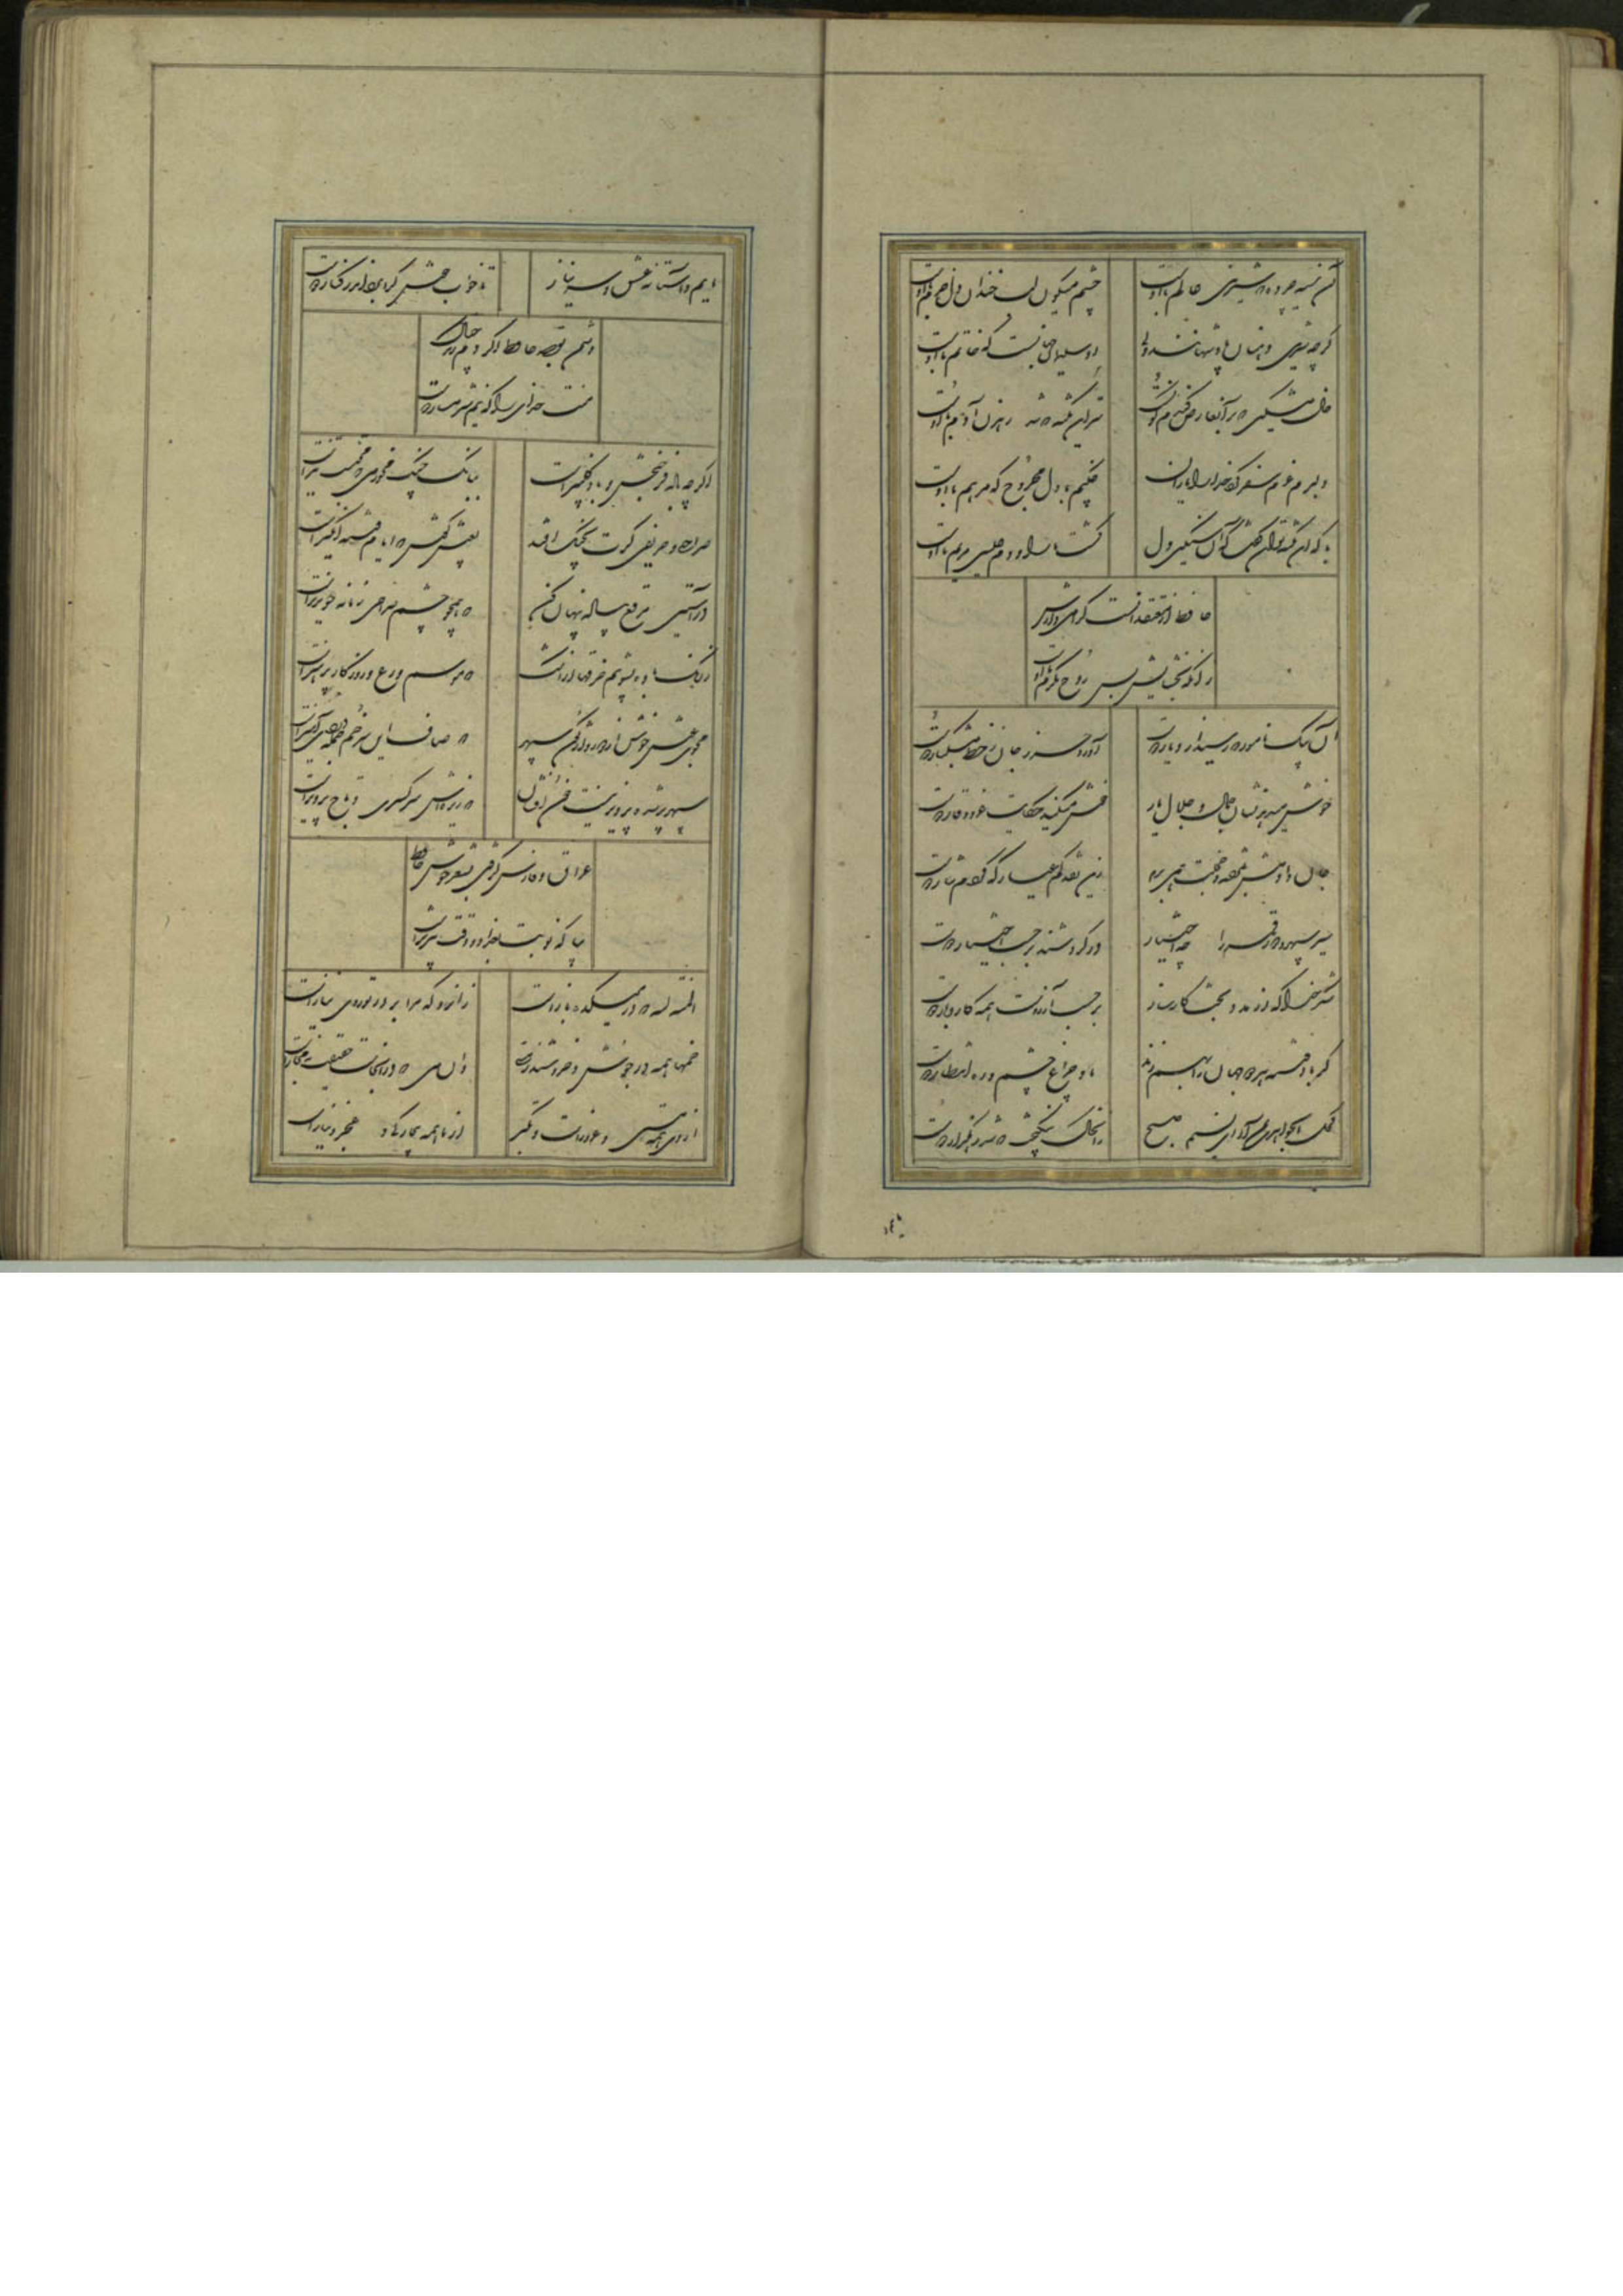 آن سیه چرده که شیرینی عالم با اوست
چشم میگون لب خندان دل خرم با اوست
گرچه شیرین دهنان پادشهانند ولی
او سلیمان جهانست که خاتم با اوست
خال مشکین که بر آن عارض گندم گونست
سر آن دانه که شد رهزن آدم با اوست
دلبرم عزم سفر کرد خدا را یاران
چکنم با دل مجروح که مرهم با اوست
با که این نکته توان گفت که آن سنگین دل
کشت ما را و دم عیسی مریم با اوست
حافظ از معتقدانست گرامی دارش
زانکه بخشایش بس روح مکرم با اوست
آن پیک نامور که رسید از دیار دوست
آورد حرز جان ز خط مشکبار دوست
خوش میدهد نشان جمال و جلال یار
خوش میکند حکایت عز و وقار دوست
جان دادمش بمژده و خجلت همی برم
زین نقد کم عیار که کردم نثار دوست
سیر سپهر و دور قمر را چه اختیار
در گردشند بر حسب اختیار دوست
شکر خدا که از مدد بخت کارساز
بر حسب آرزوست همه کار و بار دوست
گر باد فتنه هر دو جهان را بهم زند
ما و چراغ چشم و ره انتظار دوست
کحل الجواهری بمن آر ای نسیم صبح
زان خاک نیکبخت که شد رهگذار دوست
ماییم و آستانه عشق و سر نیاز
تا خواب خوش کرا برد اندر کنار دوست
دشمن بقصد حافظ اگر دم زند چه باک
منت خدای را که نیم شرمسار دوست
اگرچه باده فرح بخش و باد گلبیزست
ببانگ چنگ مخور می که محتسب تیزست
صراحی و حریفی گرت بچنگ افتد
بعیش کوش که ایام فتنه انگیزست
در آستین مرقع پیاله پنهان کن
که همچو چشم صراحی زمانه خونریزست
ز رنگ باده بشوییم خرقها در اشک
که موسم ورع و روزگار پرهیزست
مجوی عیش خوش از دور واژگون سپهر
که صاف این سر خم جمله دردی آمیزست
سپهر بر شده پرویزنیست خون افشان
که ریزه اش سر کسری و تاج پرویزست
عراق و فارس گرفتی بشعر خوش حافظ
بیا که نوبت بغداد و وقت تبریزست
المنة لله که در میکده بازست
زانرو که مرا بر در او روی نیازست
خمها همه در جوش و خروشند ز مستی
وان می که در آنجاست حقیقت نه مجازست
از وی همه مستی و غرورست و تکبر
از ما همه بیچارگی و عجز و نیازست